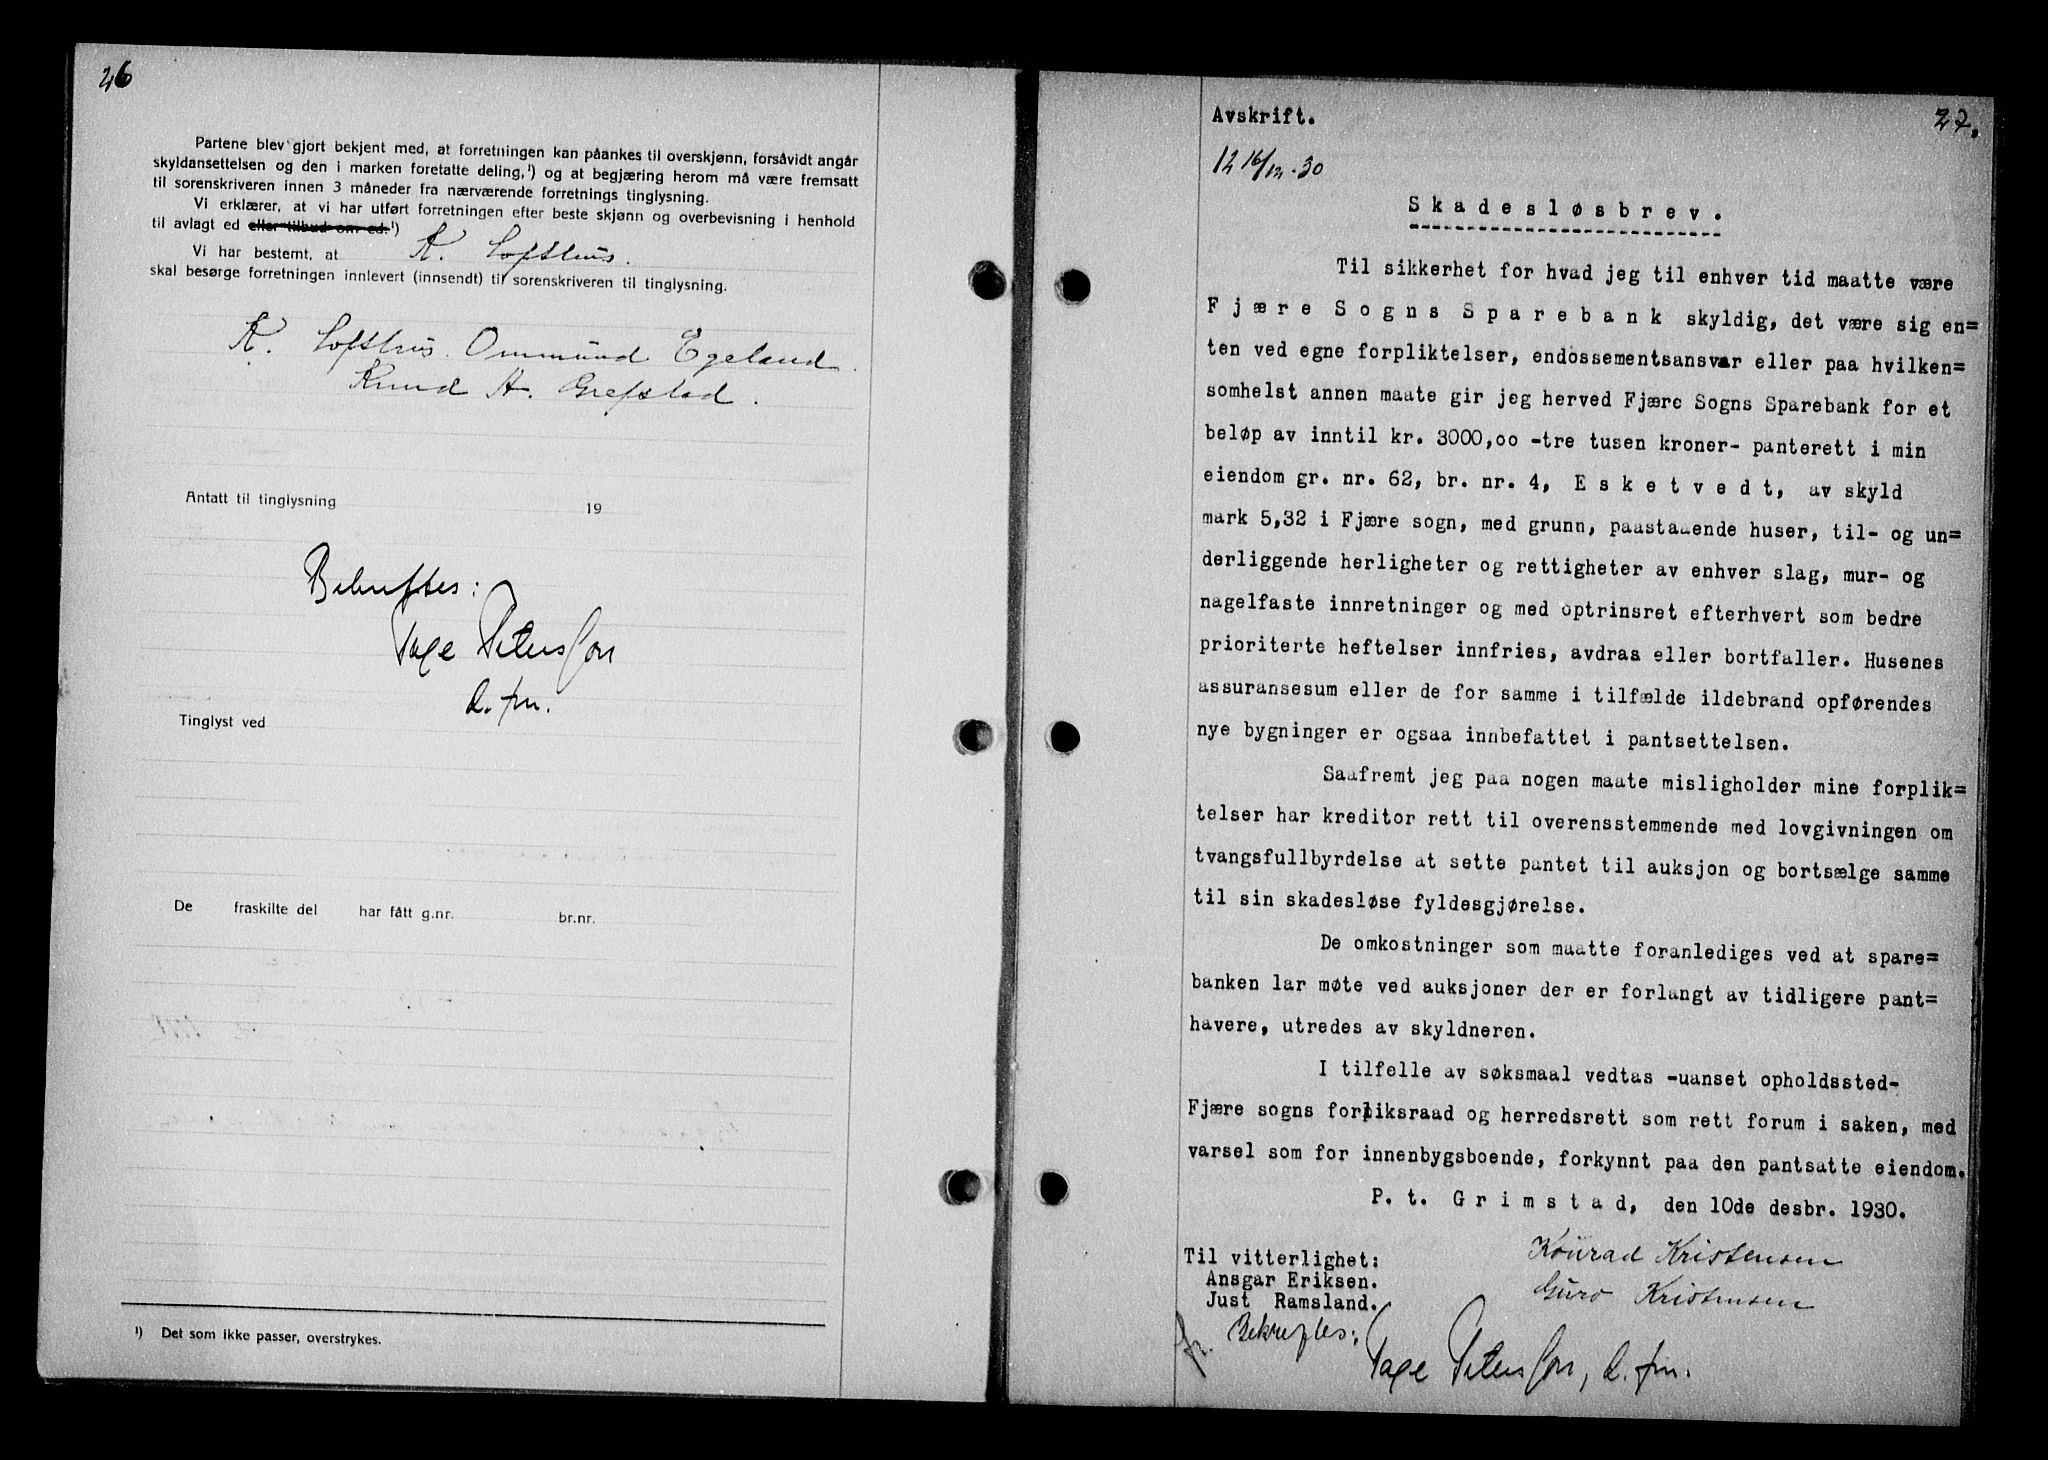 26
Partene blev gjort bekjent med, at forretningen kan påankes til overskjønn, forsåvidt angår
skyldansettelsen og den i marken foretatte deling,¹) og at begjæring herom må være fremsatt
til sorenskriveren innen 3 måneder fra nærværende forretnings tinglysning.
Vi erklærer, at vi har utført forretningen efter beste skjønn og overbevisning i henhold
til avlagt ed eller tilbud om ed.¹)
Vi har bestemt, at K. Lofthus.
skal besørge forretningen innlevert (innsendt) til sorenskriveren til tinglysning.
K. Lofthus. Ommund Egeland.
Knud A. Grefstad.
Antatt til tinglysning 19
Bekreftes:
Tage Petersson
d. fm.
Tinglyst ved
De fraskilte del har fått g.nr. br.nr.
¹) Det som ikke passer, overstrykes.
27.
Avskrift.
12 16/12-30
Skadesløsbrev.
Til sikkerhet for hvad jeg til enhver tid maatte være
Fjære Sogns Sparebank skyldig, det være sig en=
ten ved egne forpliktelser, endossementsansvar eller paa hvilken=
somhelst annen maate gir jeg herved Fjære Sogns Sparebank for et
beløp av inntil kr. 3000,oo -tre tusen kroner- panterett i min
eiendom gr. nr. 62, br. nr. 4, Esketvedt, av skyld
mark 5,32 i Fjære sogn, med grunn, paastaaende huser, til- og un=
derliggende herligheter og rettigheter av enhver slag, mur- og
nagelfaste innretninger og med optrinsret efterhvert som bedre
prioriterte heftelser innfries, avdras eller bortfaller. Husenes
assuransesum eller de for samme i tilfælde ildebrand opførendes
nye bygninger er ogsaa innbefattet i pantsettelsen.
Saafremt jeg paa nogen maate misligholder mine forplik=
telser har kreditor rett til overensstemmende med lovgivningen om
tvangsfullbyrdelse at sette pantet til auksjon og bortsælge samme
til sin skadesløse fyldesgjørelse.
De omkostninger som maatte foranlediges ved at spare=
banken lar møte ved auksjoner der er forlangt av tidligere pant=
havere, utredes av skyldneren.
I tilfelle av søksmaal vedtas -uanset opholdssted-
Fjære sogns forliksraad og herredsrett som rett forum i saken, med
varsel som for innenbygsboende, forkynnt paa den pantsatte eiendom.
P. t. Grimstad, den 10de desbr. 1930.
Konrad Kristensen
Guro Kristensen
Til vitterlighet:
Ansgar Eriksen.
Just Ramsland.
Bekreftes:
Tage Petersson, d. fm.